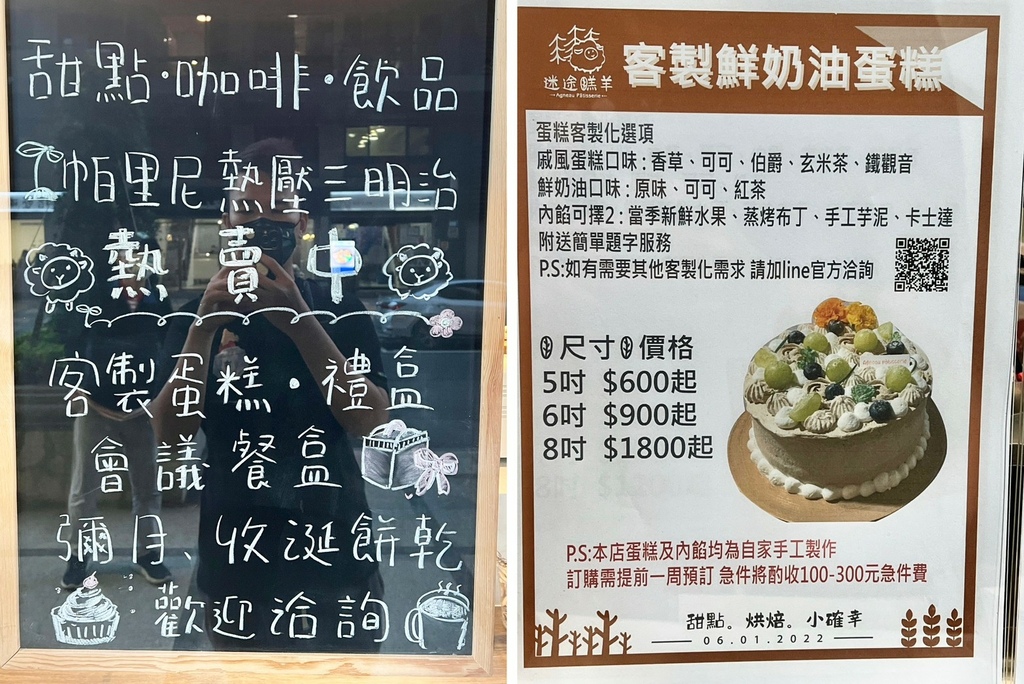 甜點・咖啡・飲品
帕里尼熱壓三明治
熱賣中
客製蛋糕・禮盒
會議餐盒
彌月、收涎餅乾
歡迎洽詢
迷途糕羊
Agneau Pâtisserie
客製鮮奶油蛋糕
蛋糕客製化選項
戚風蛋糕口味:香草、可可、伯爵、玄米茶、鐵觀音
鮮奶油口味:原味、可可、紅茶
內餡可擇2:當季新鮮水果、蒸烤布丁、手工芋泥、卡士達
附送簡單題字服務
P.S:如有需要其他客製化需求 請加line官方洽詢
尺寸 價格
5吋 $600起
6吋 $900起
8吋 $1800起
P.S:本店蛋糕及內餡均為自家手工製作
訂購需提前一周預訂 急件將酌收100-300元急件費
甜點。烘焙。小確幸
06.01.2022